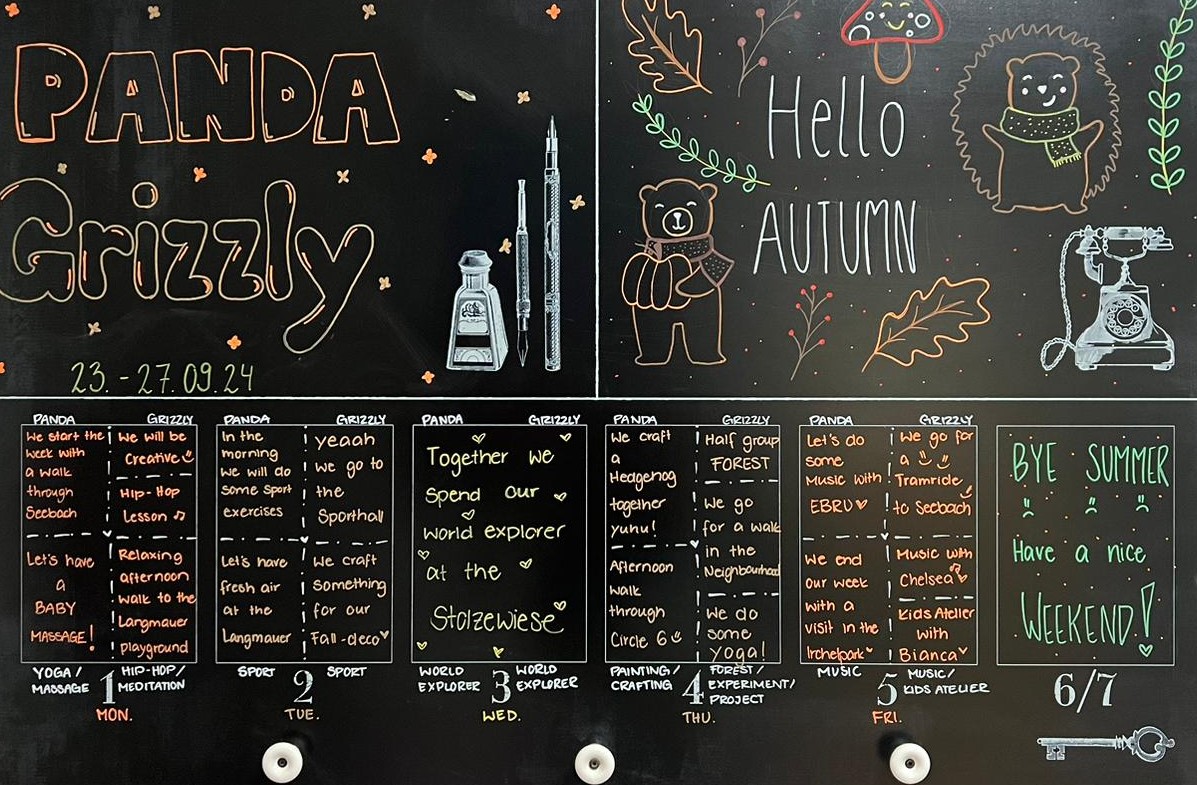 PANDA
Grizzly
23. - 27.09.24
Hello
AUTUMN
PANDA
We start the
week with
a walk
through
Seebach
Let's have
a
BABY
MASSAGE!
YOGA/
MASSAGE
GRIZZLY
We will be
Creative
HIP-HOP
Lesson ♫
Relaxing
afternoon
walk to the
Langmauer
playground
HIP-HOP/
MEDITATION
1
MON.
PANDA
In the
morning
we will do
some sport
exercises
Let's have
fresh air
at the
Langmauer
SPORT
GRIZZLY
yeaah
we go to
the
Sporthall
We craft
Something
for our
Fall-deco
SPORT
2
TUE.
PANDA
GRIZZLY
Together we
Spend our
world explorer
at the
Stolzewiese
WORLD
EXPLORER
WORLD
EXPLORER
3
WED.
PANDA
We craft
a
Hedgehog
together
yuhu!
Afternoon
walk
through
Circle 6
PAINTING/
CRAFTING
GRIZZLY
Half group
FOREST
We go
for a walk
in the
Neighbourhood
We do
some
yoga!
FOREST/
EXPERIMENT/
PROJECT
4
THU.
PANDA
Let's do
some
Music with
EBRU
We end
our week
with a
visit in the
Irchelpark
MUSIC
GRIZZLY
We go for
a
Tramride
to Seebach
Music with
Chelsea
Kids Atelier
with
Bianca
MUSIC/
KIDS ATELIER
5
FRI.
BYE SUMMER
Have a nice
WEEKEND!
6/7